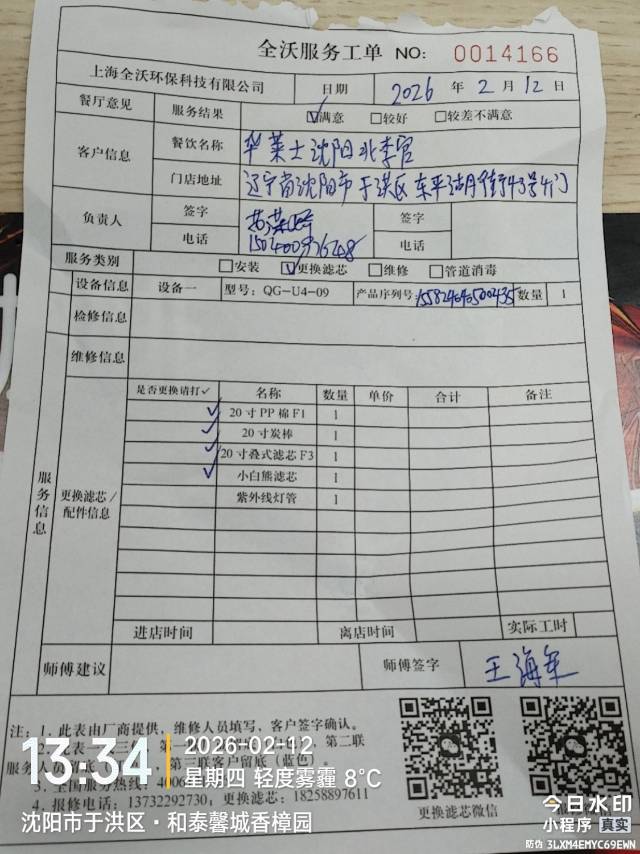 全沃服务工单 NO: 0014166
上海全沃环保科技有限公司 日期 2026 年 2 月 12 日
餐厅意见 服务结果 ☑满意 □较好 □较差不满意
客户信息 餐饮名称 华莱士沈阳北李官
门店地址 辽宁省沈阳市于洪区东平湖街43号4门
负责人 签字 签字
电话 电话
服务类别 □安装 ☑更换滤芯 □维修 □管道消毒
设备信息 设备一 型号: QG-U4-09 产品序列号: 数量 1
检修信息
维修信息
服务信息
更换滤芯/配件信息
是否更换请打✓ 名称 数量 单价 合计 备注
✓ 20寸PP棉F1 1
✓ 20寸炭棒 1
✓ 20寸叠式滤芯F3 1
✓ 小白熊滤芯 1
紫外线灯管 1
进店时间 离店时间 实际工时
师傅建议 师傅签字 王海军
注: 1. 此表由厂商提供，维修人员填写，客户签字确认。
第二联
服务人 第三联客户留底（蓝色）。
3. 全国服务热线: 4006
4. 报修电话: 13732292730, 更换滤芯: 18258897611
更换滤芯微信
13:34 2026-02-12
星期四 轻度雾霾 8°C
沈阳市于洪区·和泰馨城香樟园
今日水印
小程序 真实
防伪 3LXM4EMYC69EWN